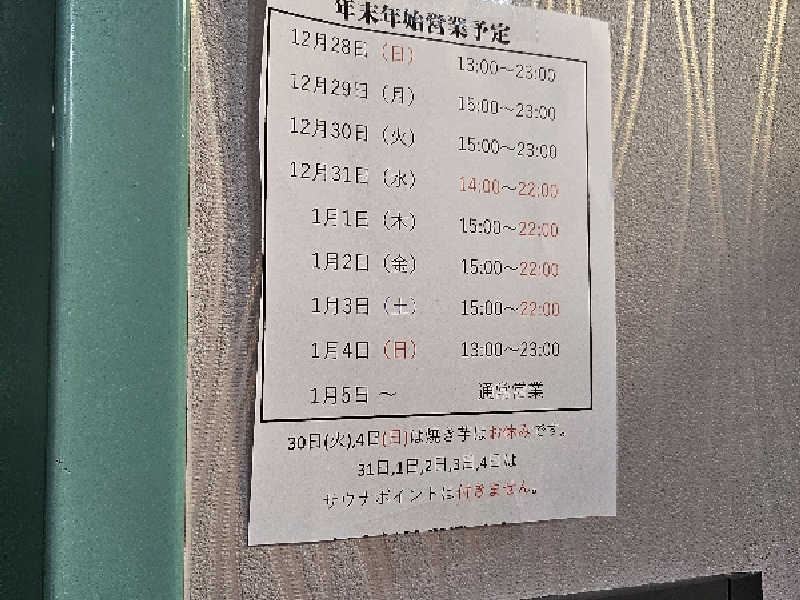 年末年始営業予定
12月28日（日） 13:00～23:00
12月29日（月） 15:00～23:00
12月30日（火） 15:00～23:00
12月31日（水） 14:00～22:00
1月1日（木） 15:00～22:00
1月2日（金） 15:00～22:00
1月3日（土） 15:00～22:00
1月4日（日） 13:00～23:00
1月5日～ 通常営業
30日(火),4日(日)は焼き芋はお休みです。
31日,1日,2日,3日,4日は
サウナポイントは付きません。